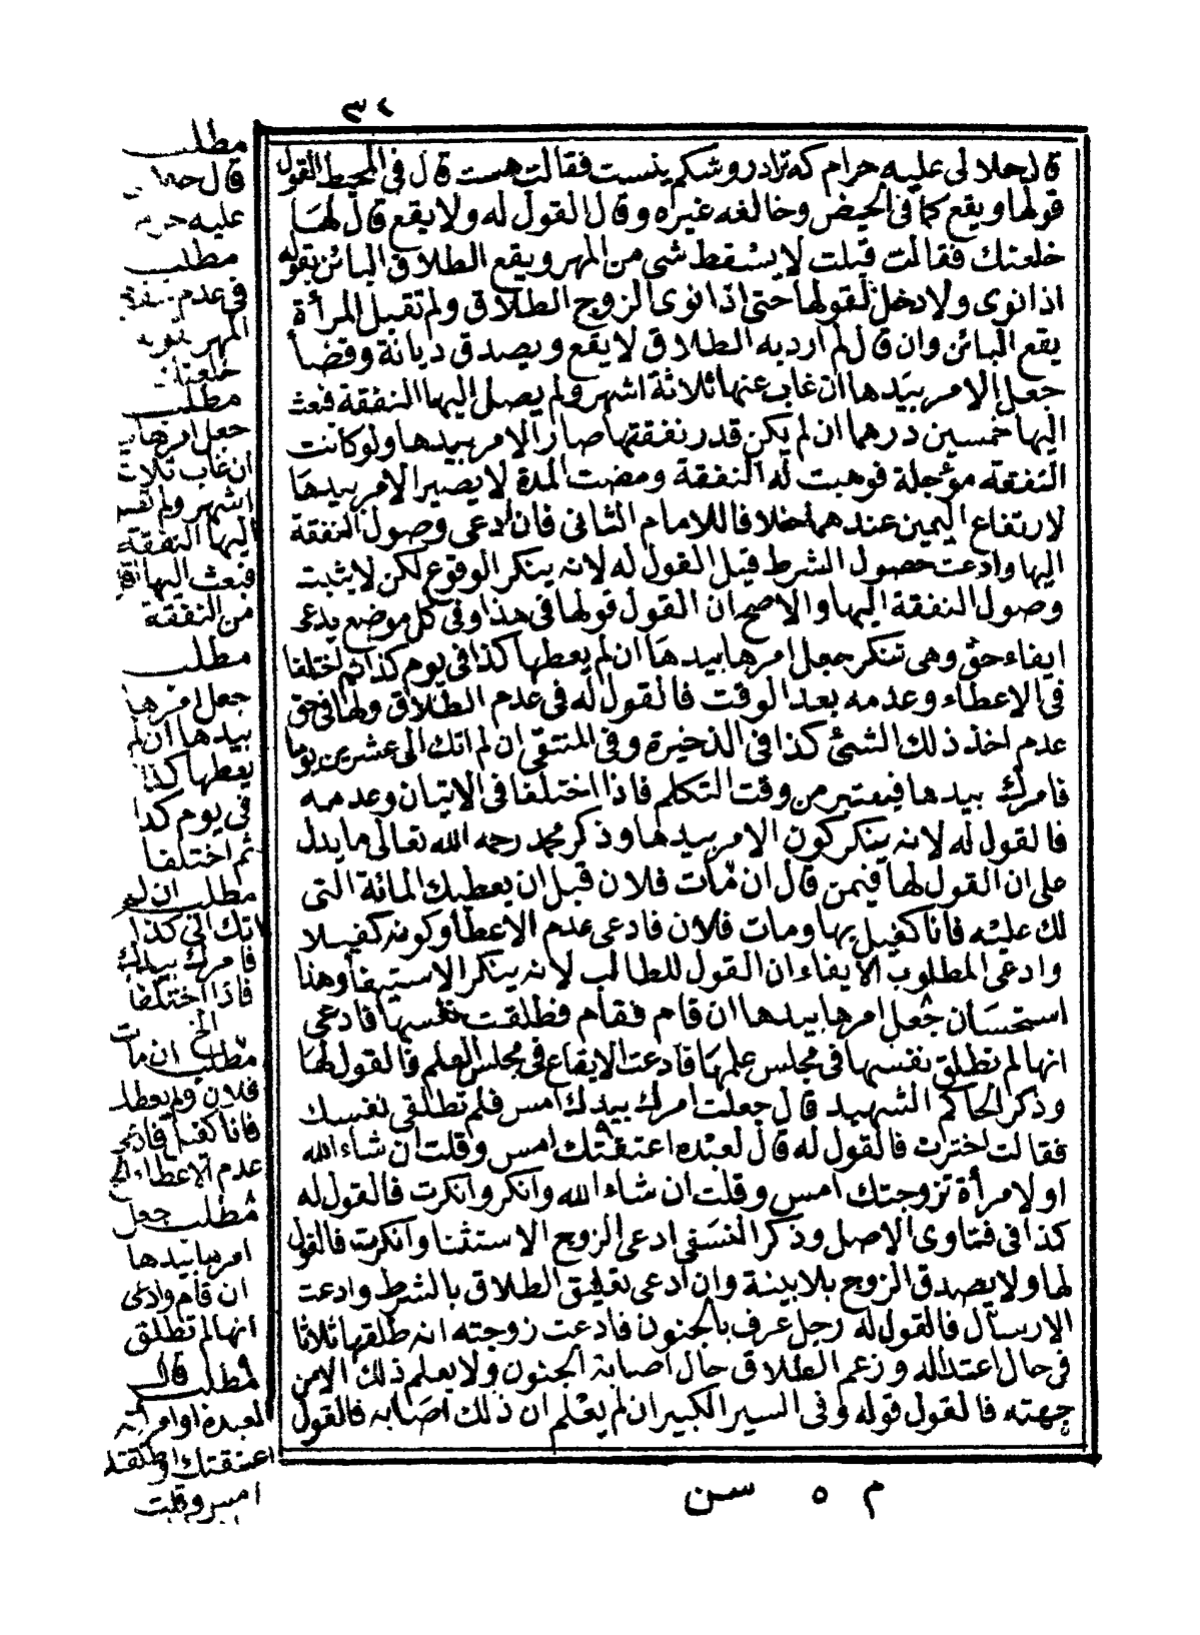 ٣٤
قال حلالى عليه حرام كه ترا در و شكم ينست فقالت هست قال فى المحيط القول
قولها ويقع كما فى الحيض وخالفه غيره وقال القول له ولا يقع قال لها
خلعتك فقالت قبلت لا يسقط شى من المهر ويقع الطلاق البائن بقوله
اذا نوى ولا دخل لقولها حتى اذا نوى الزوج الطلاق ولم تقبل المرأة
يقع البائن وان قال لم ارد به الطلاق لا يقع ويصدق ديانة وقضأ
جعل الامر بيدها ان غاب عنها ثلاثة اشهر ولم يصل اليها النفقة فبعث
اليها خمسين درهما ان لم يكن قدر نفقتها صار الامر بيدها ولو كانت
النفقة مؤجلة فوهبت له النفقة ومضت المدة لا يصير الامر بيدها
لارتفاع اليمين عندهما خلافا للامام الثانى فان ادعى وصول النفقة
اليها وادعت حصول الشرط قيل القول له لانه ينكر الوقوع لكن لا يثبت
وصول النفقة اليها والاصح ان القول قولها فى هذا وفى كل موضع يدعى
ايفاء حق وهى تنكر جعل امرها بيدها ان لم يعطها كذا فى يوم كذا ثم اختلفا
فى الاعطاء وعدمه بعد الوقت فالقول له فى عدم الطلاق ولها فى حق
عدم اخذ ذلك الشئ كذا فى الذخيرة وفى المنتقى ان لم اتك الى عشرين يوما
فامرك بيدها فيعتبر من وقت التكلم فاذا اختلفا فى الاتيان وعدمه
فالقول له لانه ينكر كون الامر بيدها وذكر محمد رحمه الله تعالى ما يدل
على ان القول لها فيمن قال ان مات فلان قبل ان يعطيك المائة التى
لك عليه فانا كفيل بها ومات فلان فادعى عدم الاعطأ وكونه كفيلا
وادعى المطلوب الايفاء ان القول للطالب لانه ينكر الاستيفأ وهذا
استحسان جعل امرها بيدها ان قام فقام فطلقت نفسها فادعى
انها لم تطلق نفسها فى مجلس علمها فادعت الايقاع فى مجلس العلم فالقول لها
وذكر الحاكم الشهيد قال جعلت امرك بيدك امس فلم تطلقى نفسك
فقالت اخترت فالقول له قال لعبده اعتقتك امس وقلت ان شاء الله
او لامرأة تزوجتك امس وقلت ان شاء الله وانكر وانكرت فالقول له
كذا فى فتاوى الاصل وذكر النسفى ادعى الزوج الاستثنا وانكرت فالقول
لها ولا يصدق الزوج بلا بينة وان ادعى تعليق الطلاق بالشرط وادعت
الارسال فالقول له رجل عرف بالجنون فادعت زوجته انه طلقها ثلاثا
فى حال اعتداله وزعم الطلاق حال اصابة الجنون ولا يعلم ذلك الا من
جهته فالقول قوله وفى السير الكبير ان لم يعلم ان ذلك اصابه فالقول
مطلب
قال حلا
عليه حرم
مطلب
فى عدم
المهر بقوله
خلعتك
مطلب
جعل امرها
ان غاب ثلاث
اشهر ولم تصل
اليها النفقة
فبعث اليها
من النفقة
مطلب
جعل امرها
بيدها ان لم
يعطها كذا
فى يوم كذا
ثم اختلفا
مطلب ان لم
اتك الى كذا
فامرك بيدك
فاذا اختلفا
الخ
مطلب ان مات
فلان ولم يعطك
فانا كفيل
عدم الاعطاء الخ
مطلب جعل
امرها بيدها
ان قام وادعى
انها لم تطلق
مطلب قال
لعبده او امرأته
اعتقتك او طلقتك
امس وقلت
م ٥ سن